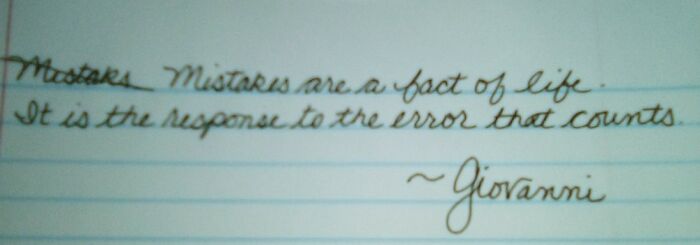 Mistaks Mistakes are a fact of life.
It is the response to the error that counts.
~ Giovanni